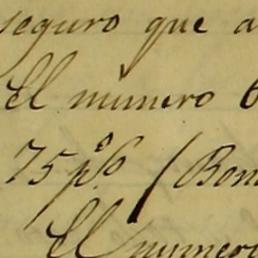 seguro que a
El número 6
75 p.% (Bon
El numero